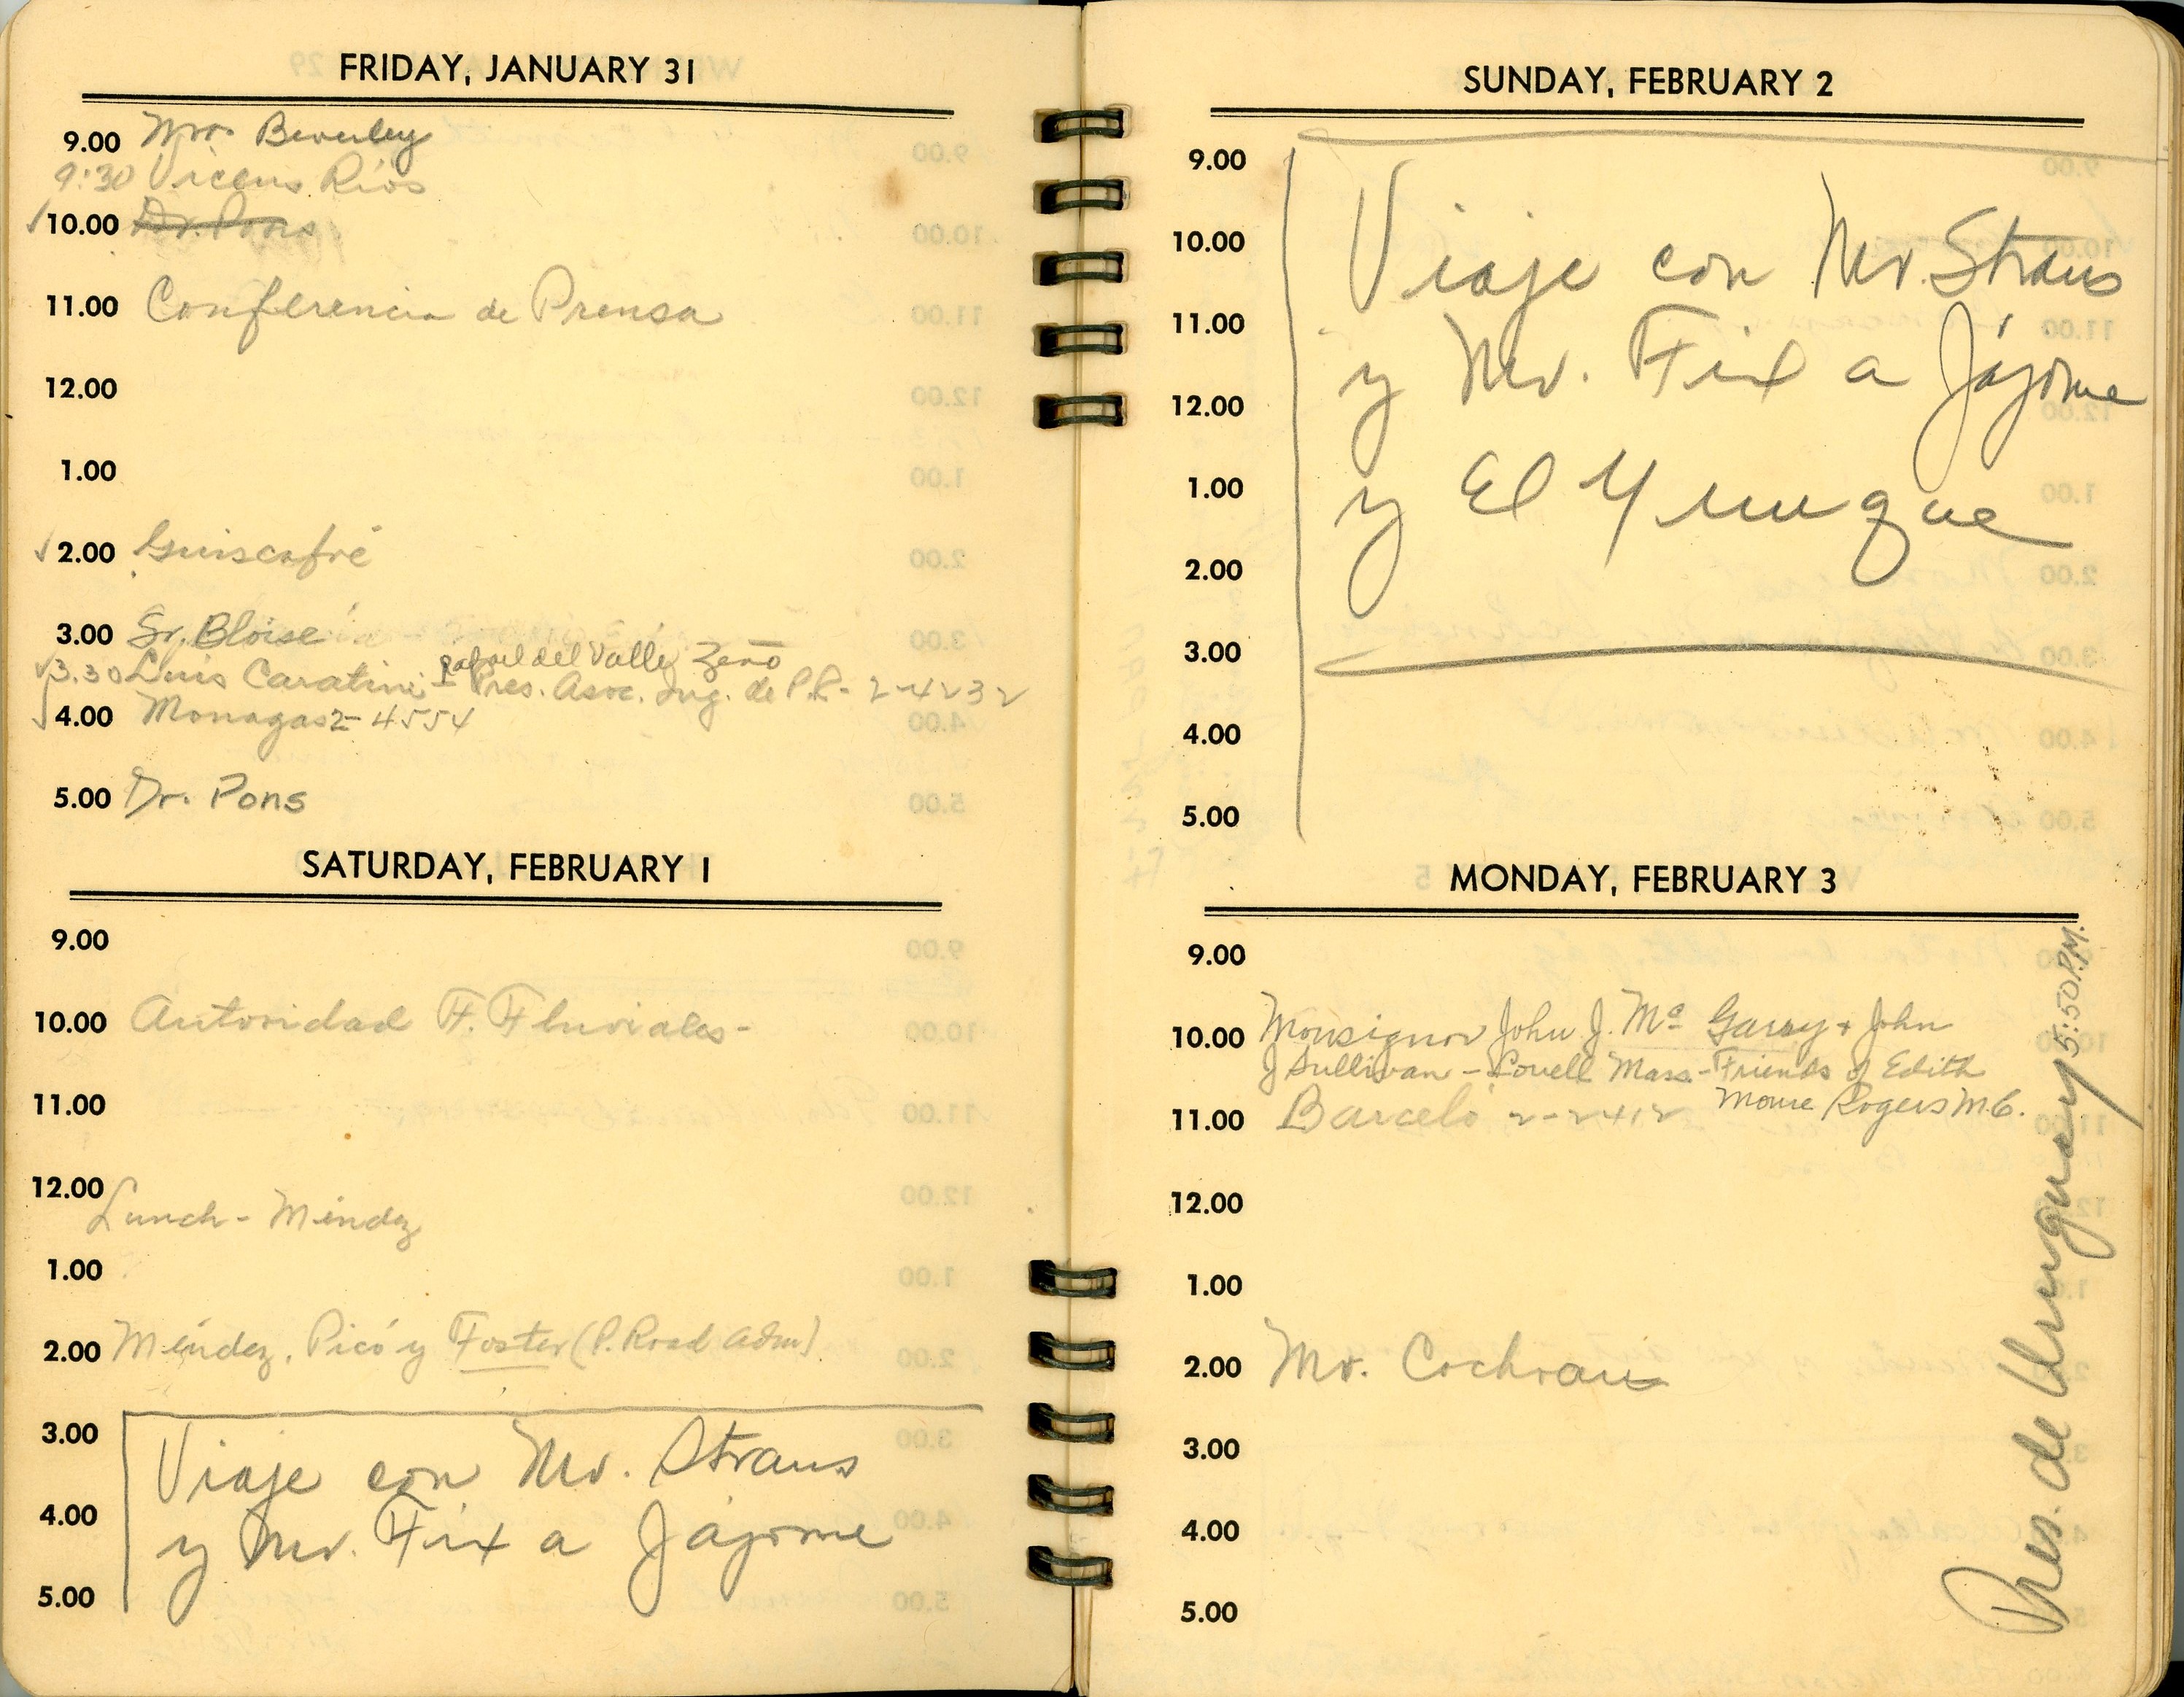 FRIDAY, JANUARY 31
9.00 Mr. Beverley
9:30 Vicens Ríos
√10.00 Dr. Pons
11.00 Conferencia de Prensa
12.00
1.00
√2.00 Guiscafré
3.00 Sr. Bloise
Rafael del Valle Zeno
√3.30 Luis Caratini - Pres. Asoc. Ing. de P.R. - 2-4232
√4.00 Monagas 2-4554
5.00 Dr. Pons
SATURDAY, FEBRUARY 1
9.00
10.00 Autoridad F. Fluviales-
11.00
12.00
Lunch - Méndez
1.00
2.00 Méndez, Picó y Foster (P. Road Adm)
3.00 Viaje con Mr. Straus
4.00 y Mr. Fix a Jájome
5.00
SUNDAY, FEBRUARY 2
9.00
10.00 Viaje con Mr. Straus
11.00
12.00 y Mr. Fix a Jájome
1.00 y El Yunque
2.00
3.00
4.00
5.00
MONDAY, FEBRUARY 3
9.00
10.00 Monsignor John J. Mc Garry + John
J Sullivan - Lowell Mass. - Friends of Edith
Mourse Rogers M.C.
11.00 Barceló 2-2412
12.00
1.00
2.00 Mr. Cochran
3.00
4.00
5.00
Pres. de Uruguay 5:50 P.M.